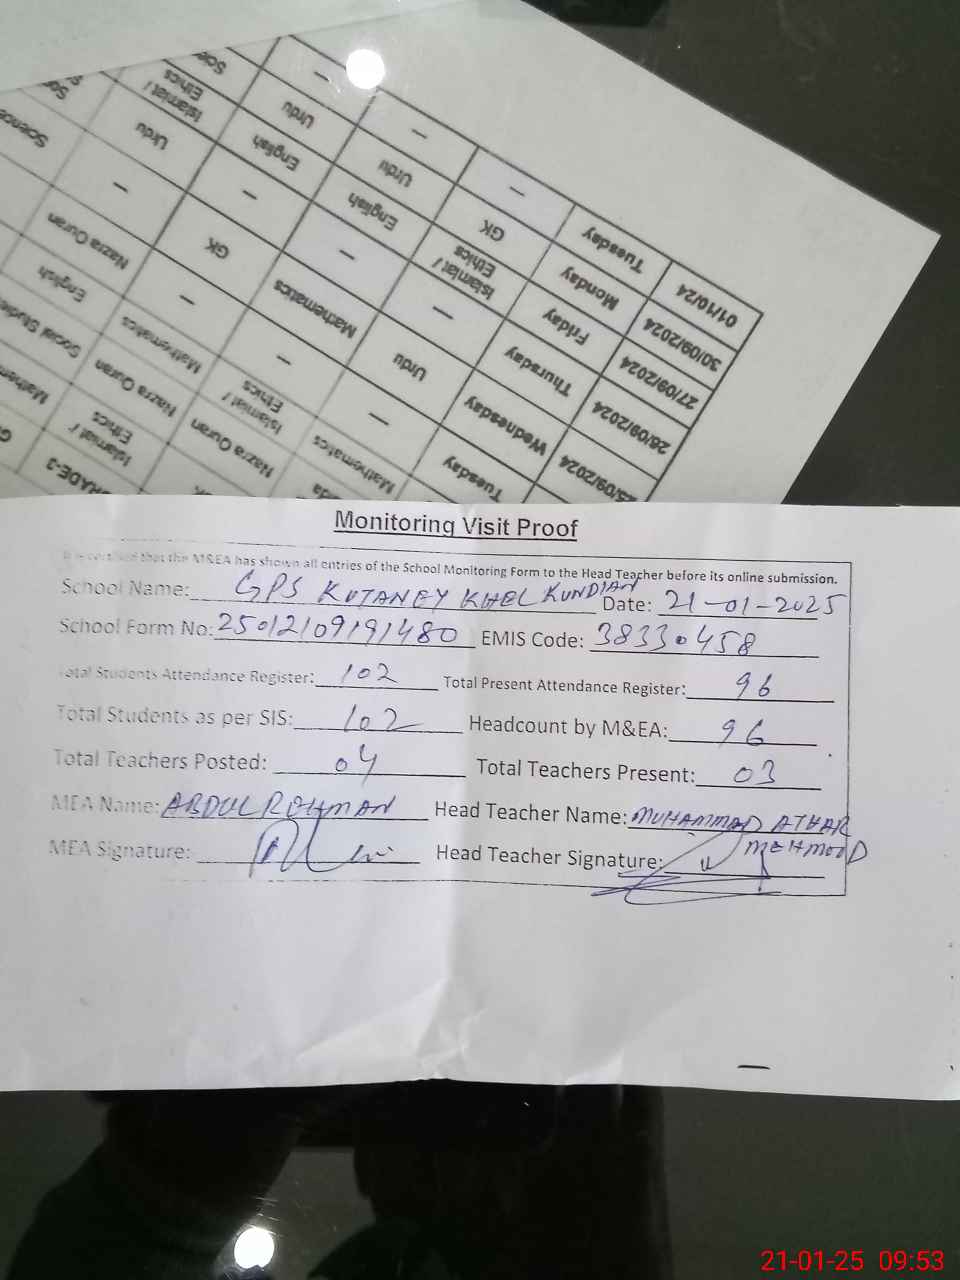 01/10/24 Tuesday —
30/09/2024 Monday GK Urdu —
27/09/2024 Friday Islamiat / Ethics English Urdu —
26/09/2024 Thursday — — English Islamiat / Ethics
25/09/2024 Wednesday Urdu Mathematics — Urdu
Tuesday — — GK — Science
Mathematics Islamiat / Ethics Mathematics — Nazra Quran
Nazra Quran Nazra Quran English
Islamiat / Ethics Social
GRADE-3
Monitoring Visit Proof
It is certified that the M&EA has shown all entries of the School Monitoring Form to the Head Teacher before its online submission.
School Name: GPS KUTANEY KHEL KUNDIAN Date: 21-01-2025
School Form No: 25012109191480 EMIS Code: 38330458
Total Students Attendance Register: 102 Total Present Attendance Register: 96
Total Students as per SIS: 102 Headcount by M&EA: 96
Total Teachers Posted: 04 Total Teachers Present: 03
MEA Name: ABDUL REHMAN Head Teacher Name: MUHAMMAD ATHAR MEHMOOD
MEA Signature: Head Teacher Signature:
21-01-25 09:53